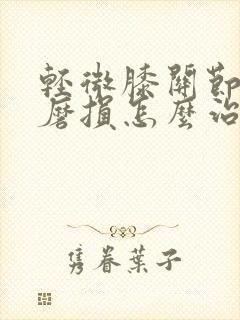 輕微膝關節
磨損怎麼治
隽眷葉子